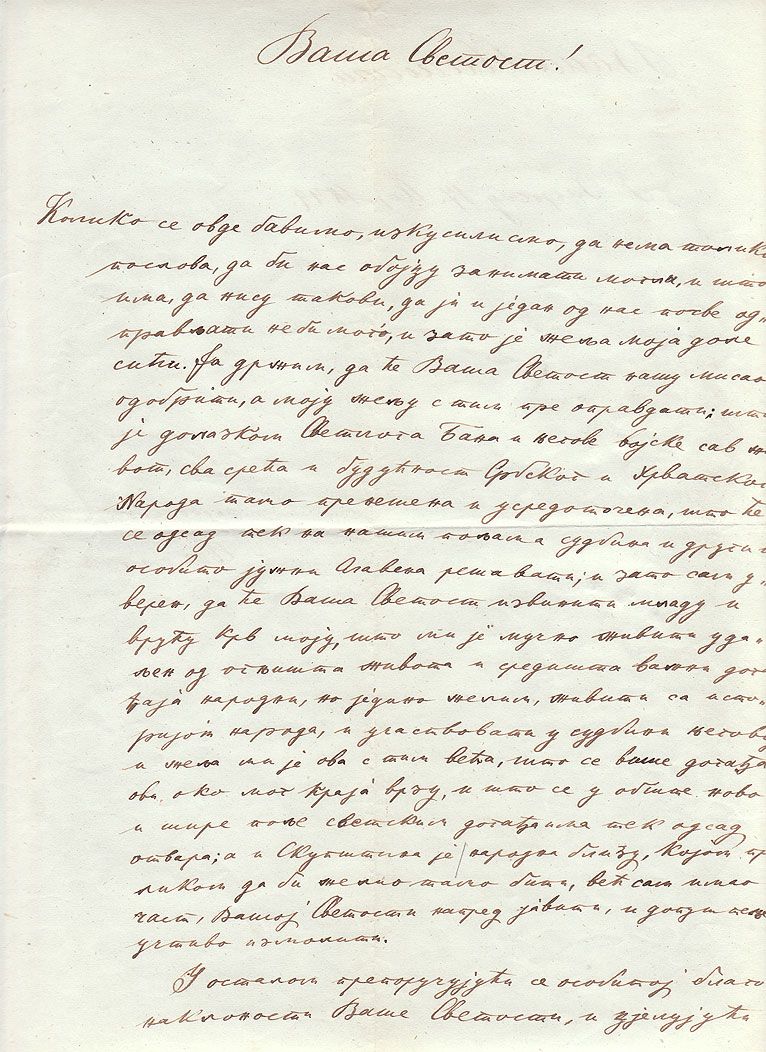 Ваша Светост!
Колико се овде бавимо, изкусилисмо, да нема толико
послова, да би нас обојцу занимати могла, и што
има, да нису такови, да ји и један од нас посве од„
прављати неби мого, и зато је жеља моја доле
сићи. Ја држим, да ће Ваша Светост нашу мисао
одобрити, а моју жељу с тим пре оправдати; што
је долазком Светлога Бана и његове војске сав жи
вот, сва срећа и будућност Србског и Хрватског
Народа тамо пренешена и усредоточена, што ће
се одсад тек на нашим пољама судбина и други и
особито јужни Славена решавати; и зато сам у„
верен, да ће Ваша Светост извинити младу и
врућу крв моју, што ми је мучно живити уда„
љен од огњишта живота и средишта важни дога
ђаја народни, но једино желим, живити са исто„
ријом народа, и участвовати у судбини његовој
и жеља ми је ова с тим већа, што се више догађа
ови око мог краја врзу, и што се у обште ново
и шире поље светским догађаима тек одсад
отвара; а и Скупштина је народна близу, којом пр
ликом да би желио тамо бити, већ сам имао
част, Вашој Светости напред јавити, и допуштење
учтиво измолити.
У осталом препоручујући се особитој благо
наклоности Ваше Светости, и цјелујући